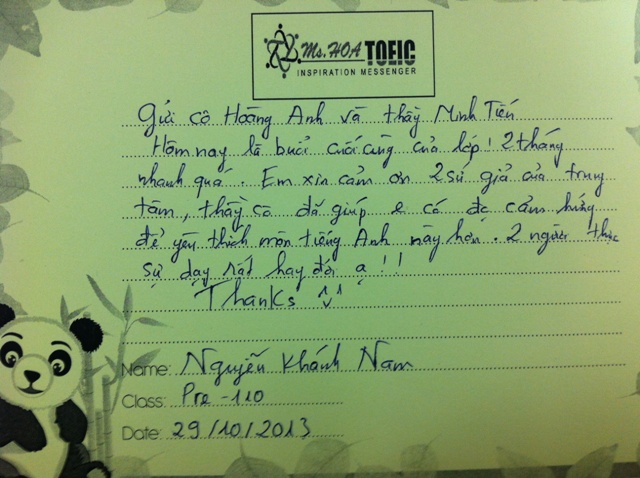 Ms. HOA TOEIC
INSPIRATION MESSENGER
Gửi cô Hoàng Anh và thầy Minh Tiến
Hôm nay là buổi cuối cùng của lớp! 2 tháng
nhanh quá. Em xin cảm ơn 2 sứ giả của trung
tâm, thầy cô đã giúp e có đc cảm hứng
để yêu thích môn tiếng Anh này hơn. 2 người thực
sự dạy rất hay đới ạ!!
Thanks
Name: Nguyễn Khánh Nam
Class: Pre -110
Date: 29/10/2013